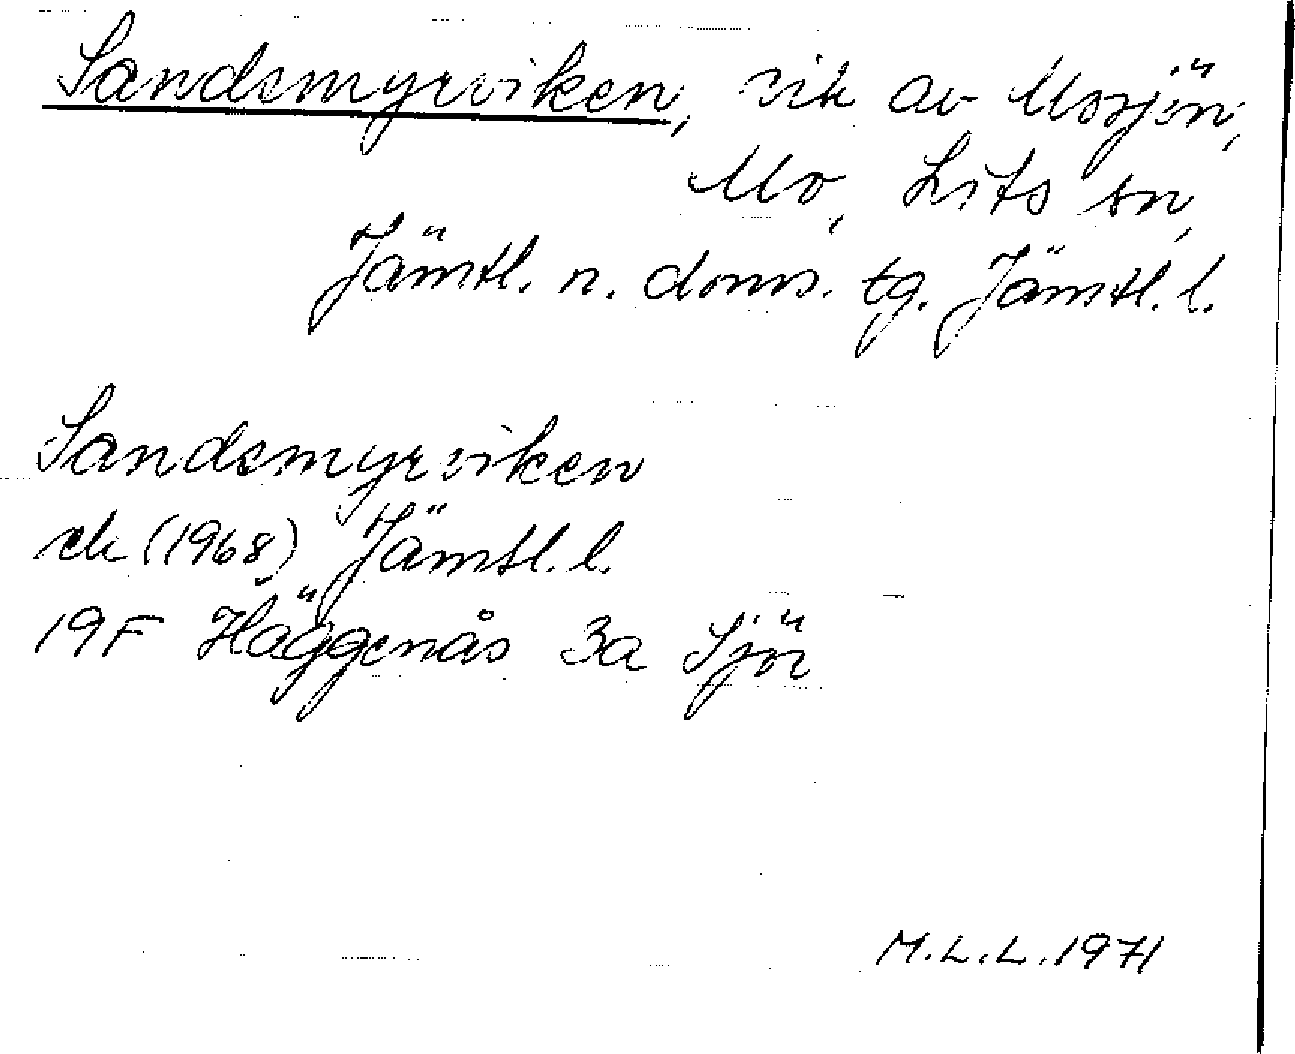 Sandsmyrviken, vik av Mosjön,
Mo, Lits sn,
Jämtl. n. doms. tg. Jämtl. l.
Sandsmyrviken
ek (1968) Jämtl. l.
19F Häggenås 3a Sjör
M.L.L. 1971